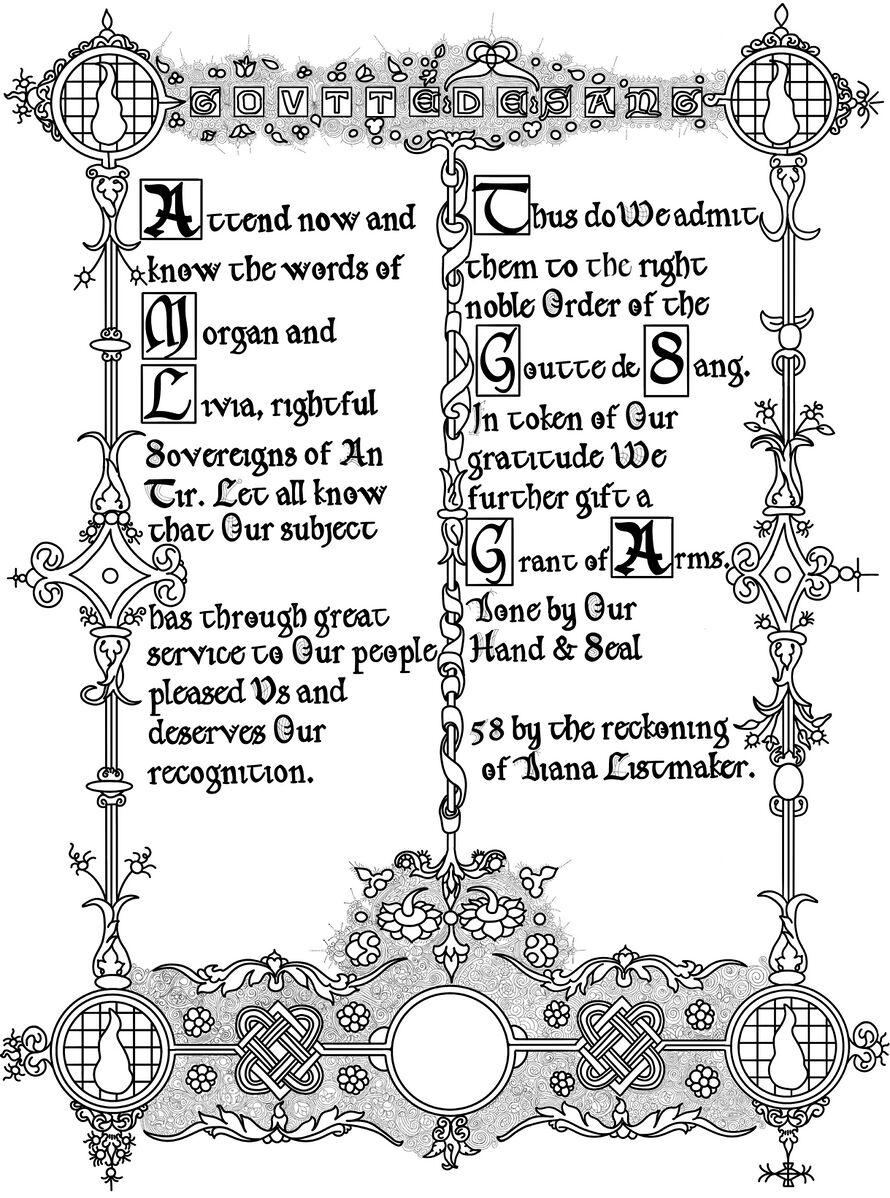 GOVTTE DE SANG
Attend now and
know the words of
Morgan and
Livia, rightful
Sovereigns of An
Tir. Let all know
that Our subject
has through great
service to Our people
pleased Vs and
deserves Our
recognition.
Thus do We admit
them to the right
noble Order of the
Goutte de Sang.
In token of Our
gratitude We
further gift a
Grant of Arms.
Done by Our
Hand & Seal
58 by the reckoning
of Diana Listmaker.